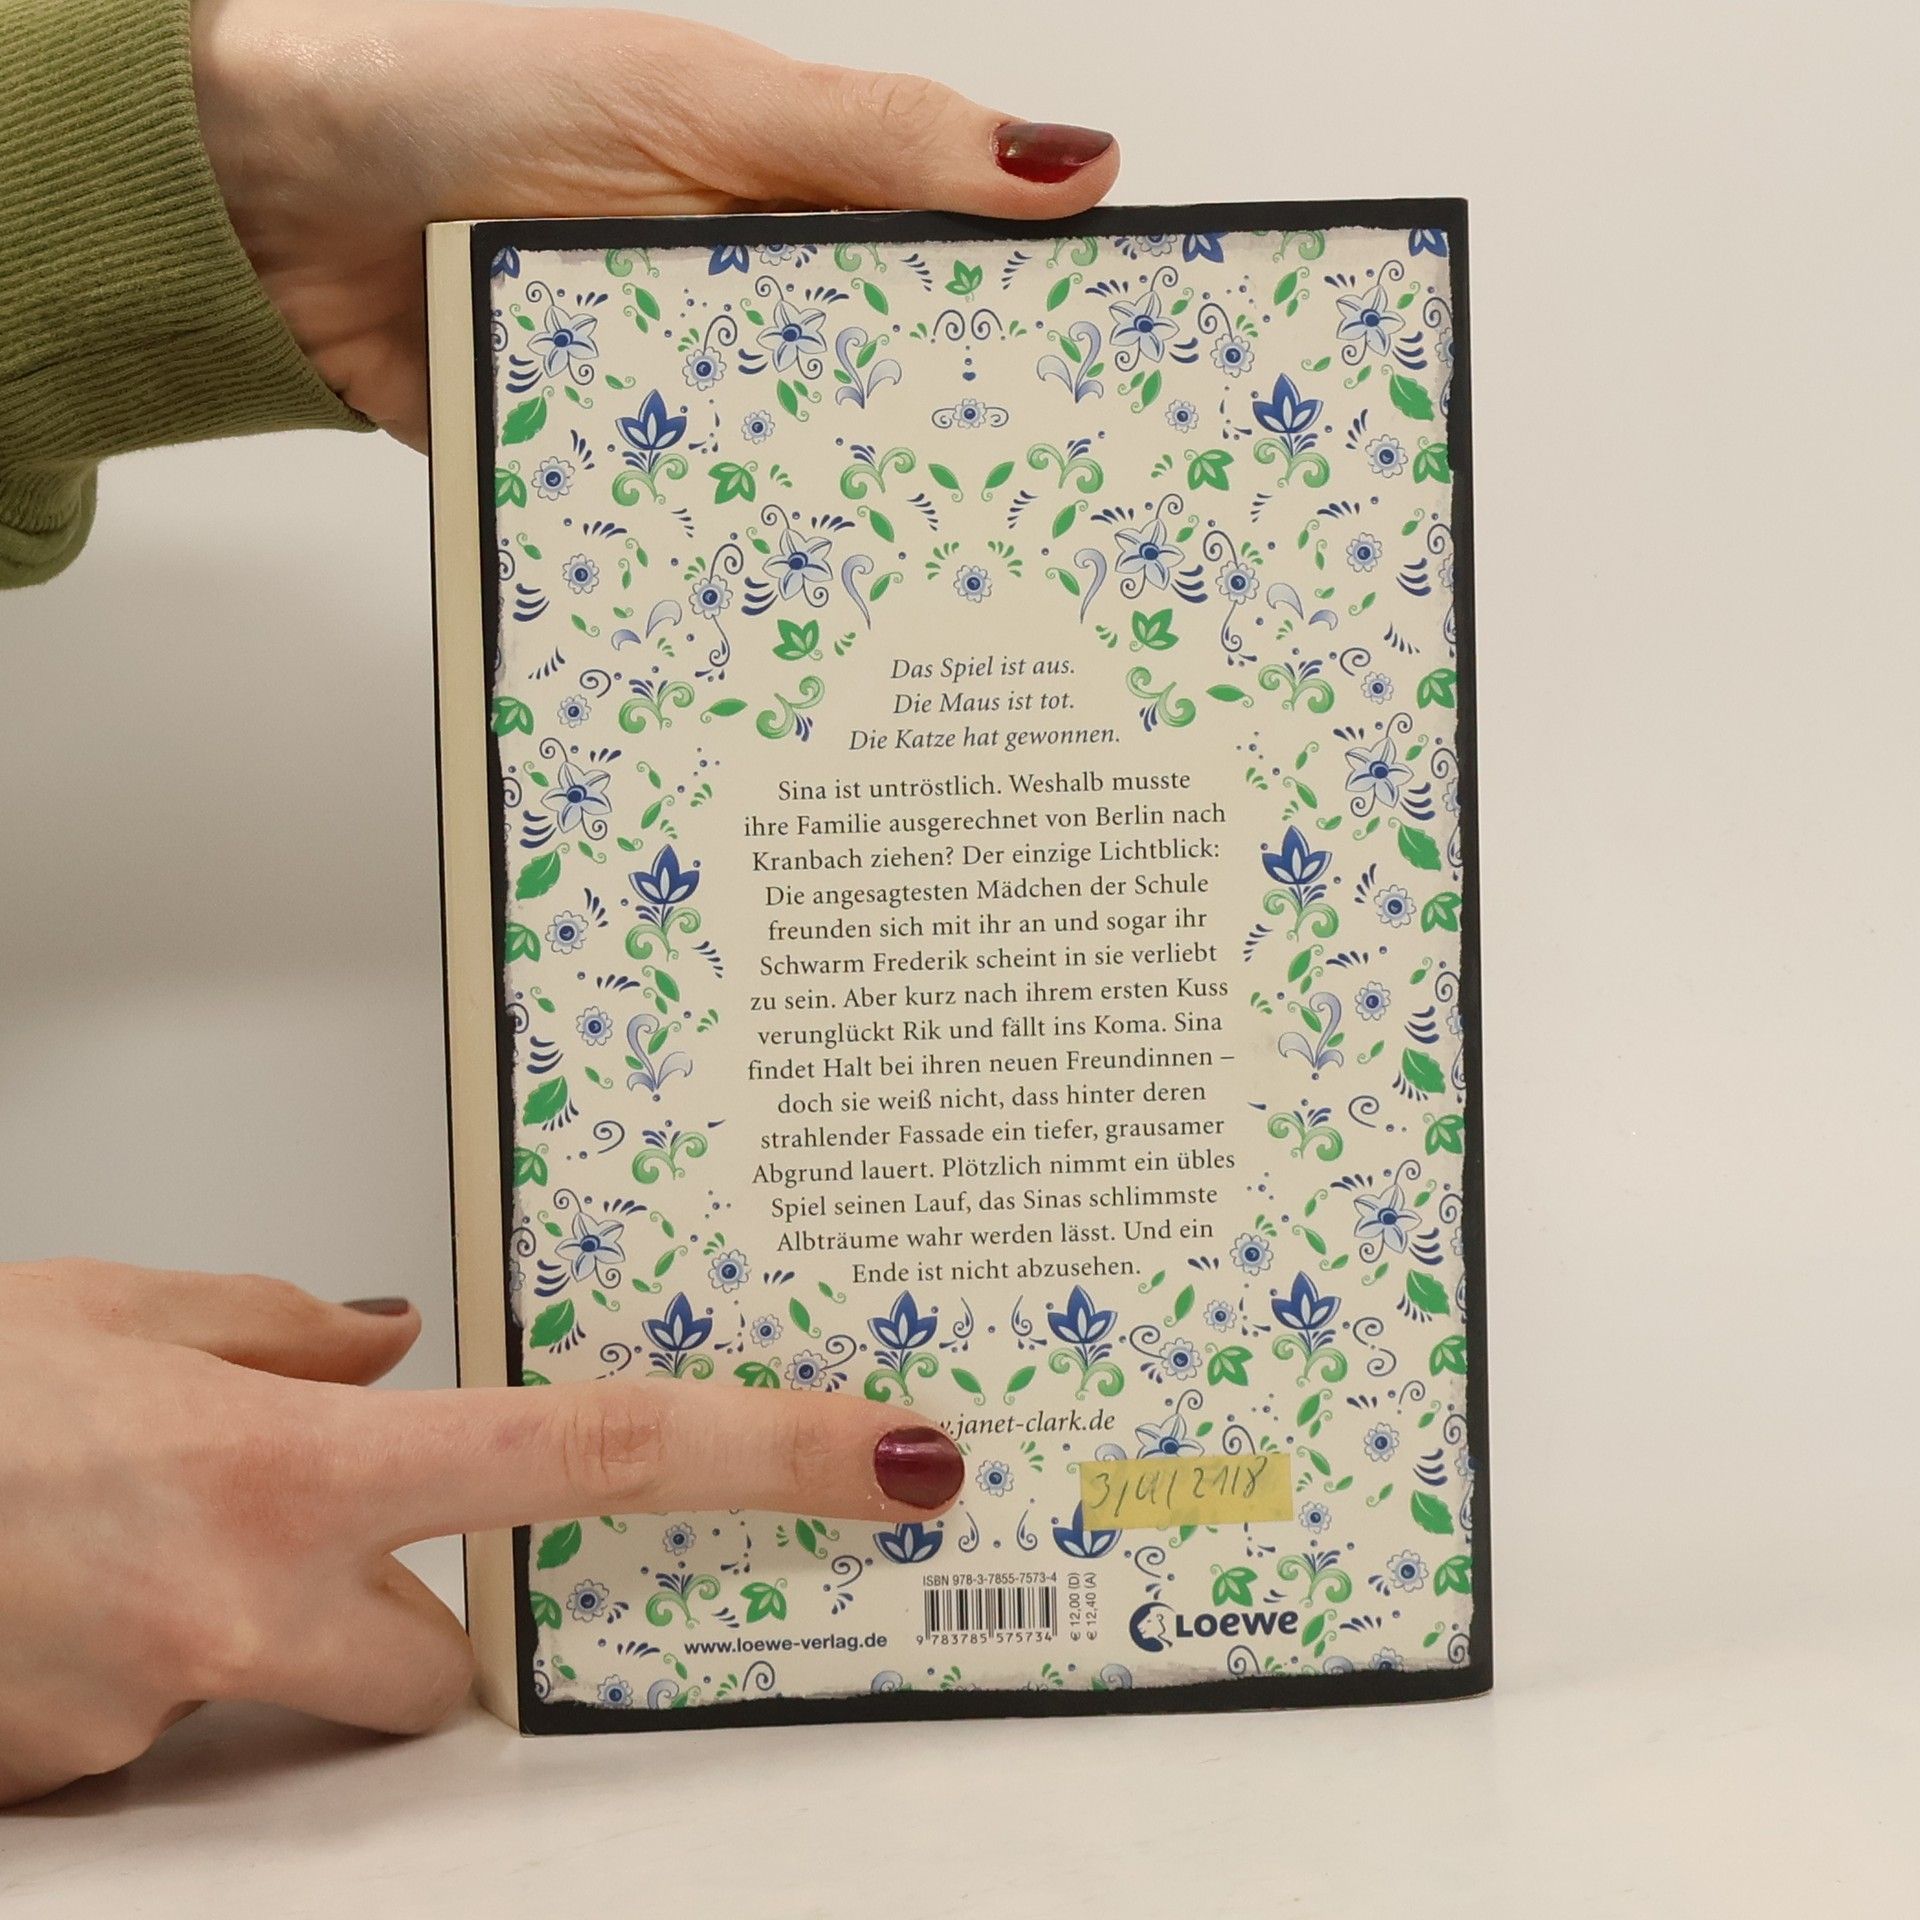 Das Spiel ist aus.
Die Maus ist tot.
Die Katze hat gewonnen.
Sina ist untröstlich. Weshalb musste
ihre Familie ausgerechnet von Berlin nach
Kranbach ziehen? Der einzige Lichtblick:
Die angesagtesten Mädchen der Schule
freunden sich mit ihr an und sogar ihr
Schwarm Frederik scheint in sie verliebt
zu sein. Aber kurz nach ihrem ersten Kuss
verunglückt Rik und fällt ins Koma. Sina
findet Halt bei ihren neuen Freundinnen –
doch sie weiß nicht, dass hinter deren
strahlender Fassade ein tiefer, grausamer
Abgrund lauert. Plötzlich nimmt ein übles
Spiel seinen Lauf, das Sinas schlimmste
Albträume wahr werden lässt. Und ein
Ende ist nicht abzusehen.
w.janet-clark.de
ISBN 978-3-7855-7573-4
9 783785 575734
€ 12,00 (D)
€ 12,40 (A)
www.loewe-verlag.de
Loewe